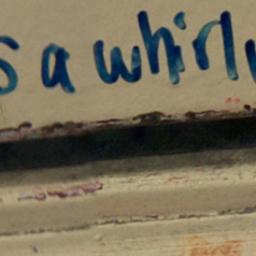 s a whirl